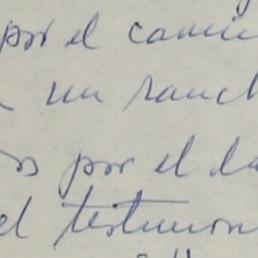 por el cami
un ranch
os por el la
el testimon